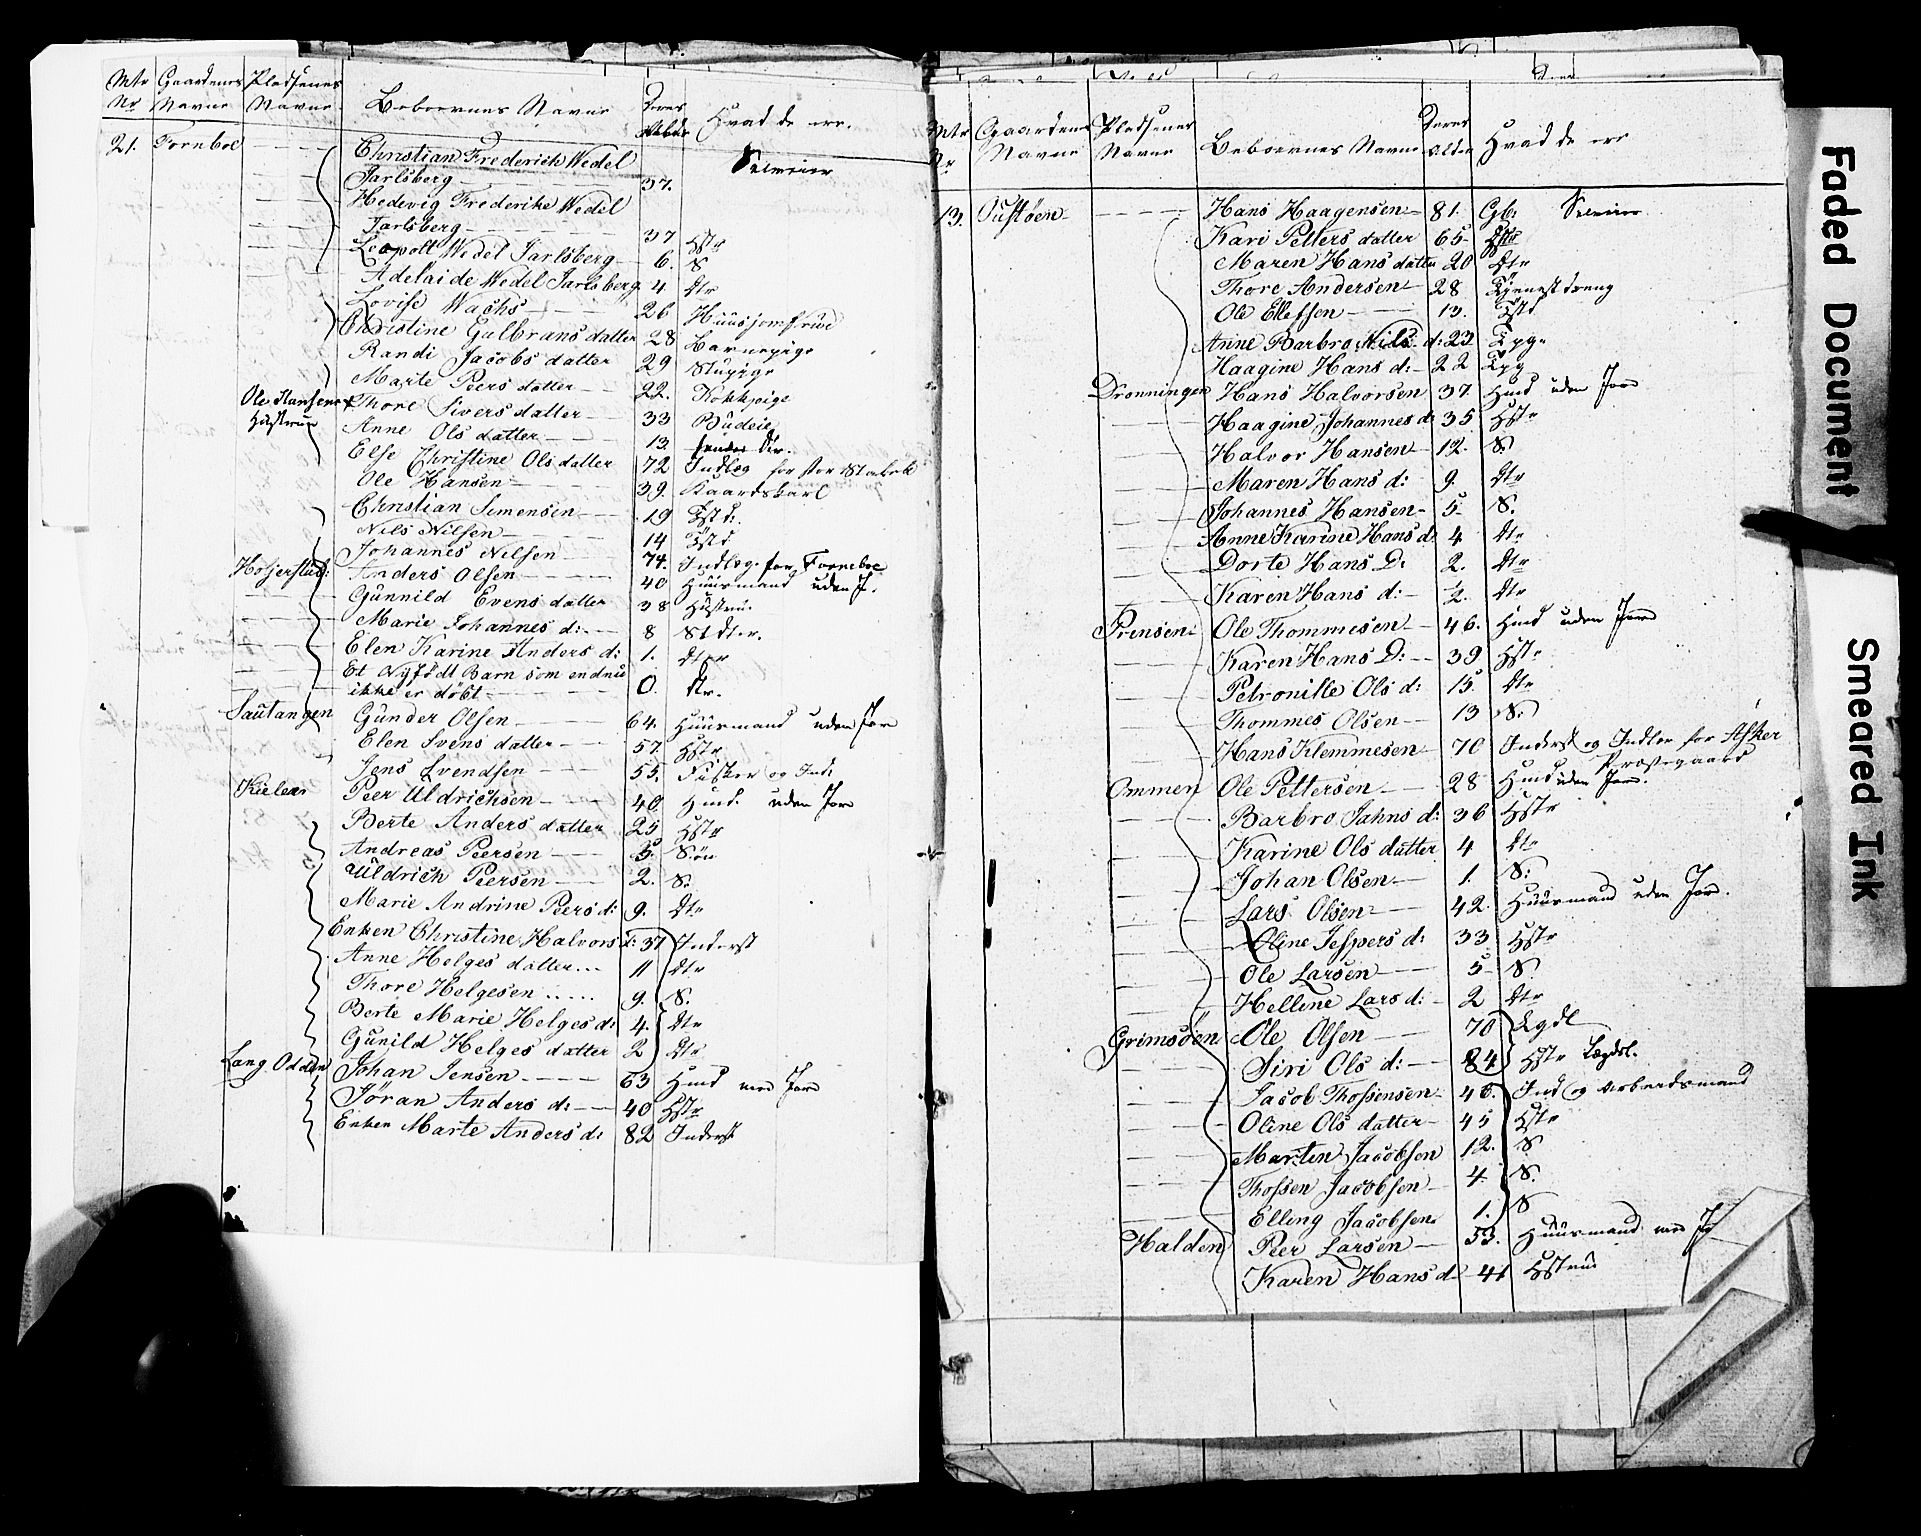 Mtr Gaardenes Pladsenes Beboernes Navne Deres Hvad de ere.
Nr Navne Navne Alder
21. Fornboe Christian Frederich Wedel Selveier
Jarlsberg 37.
Hedevig Frederike Wedel
Jarlsberg 37 Hstr
Leopolt Wedel Jarlsberg 6. S
Adelaide Wedel Jarlsberg 4 dtr
Lovise Wachs 26 Huusjomfrue
Christine Gulbrans datter 28 Barnepige
Randi Jacobs datter 29 Stupige
Marte Peers datter 22. Kokkpige
Ole Hansens Hustrue Thore Sivers datter 33 Budeie
Anne Ols datter 13. dtr.
Else Christine Ols datter 72 Indleg for
Ole Hansen 39. Gaardskarl
Christian Simensen 19 Tstd:
Nils Nilsen 14 Tstd
Johannes Nilsen 74. Indleg. for Forneboe
Anders Olsen 40 Huusmand uden J.
Gunnild Evens datter 38 Hustru.
Marie Johannes d: 8 Stdtr.
Elen Karine Anders d: 1. dtr
Et Nyfödt Barn som endnu
ikke er döbt 0. dtr.
Gunder Olsen 64. Huusmand uden Jor
Elen Svens datter 57. Hstr
Jens Svendsen 55. Fisker og Ind:
Peer Uldrichsen 40 Hmd. uden Jor
Berte Anders datter 25 Hstr
Andreas Peersen 5. Sön
Uldrich Peersen 2. S.
Marie Andrine Peers d: 9. dtr
Enken Christine Halvors d: 37 Inderst
Anne Helges datter 11 dtr
Thore Helgesen 9. S.
Berte Marie Helges d: 4. dtr
Gunild Helges datter 2 dtr
Lang Odden Johan Jensen 63 Hmd med Jord
Jöran Anders d: 40 Hstr
Enken Marte Anders d: 82 Inderst
Mtr Gaardenes Pladsenes Beboernes Navne Deres Hvad de ere
Nr Navne Navne Alder
13. Ousföen Hans Haagensen 81. Gb: Selveier
Kari Petters datter 65 Hstr
Maren Hans datter 20 dtr
Thore Andersen 28 Tjenestdreng
Ole Ellefsen 13. Tstd
Anne Barbro Nils d: 23 Tpge
Haagine Hans d: 22 Tpg
Dronningen Hans Halvorsen 37. Hmd uden Jord
Haagine Johannes d 35 Hstr
Halvor Hansen 12. S.
Maren Hans d: 9. dtr
Johannes Hansen 5 S.
Anne Karine Hans d: 4 dtr
Dorte Hans D: 2. dtr
Karen Hans d: ½. dtr
Prensen Ole Thommesen 46. Hmd uden Jord
Karen Hans D: 39 Hstr
Petronille Ols d: 15. dtr
Thommes Olsen 13 S.
Hans Klemmesen 70 Inderst og Indlee for Asker
Præstegaard
Ommen Ole Pettersen 28 Hmd uden Jor.
Barbro Jahns d: 36 Hstr
Karine Ols datter 4 dtr
Johan Olsen 1. S:
Lars Olsen 42. Huusmand uden Jor.
Oline Jespers d: 33 Hstr
Ole Larsen 5 S.
Helline Lars d: 2 dtr
Grimsöen Ole Olsen 70 Lgdl
Siri Ols d: 84 Hstr Lægdsl.
Jacob Thossensen 46. Ind og Arbeidsmand
Oline Ols datter 45 Hstr
Marten Jacobsen 12. S
Thossen Jacobsen 4 S.
Elling Jacobsen 1. S
Halden Peer Larsen 53. Huusmand med J
Karen Hans d 41 Hstrue
Faded Document
Smeared Ink